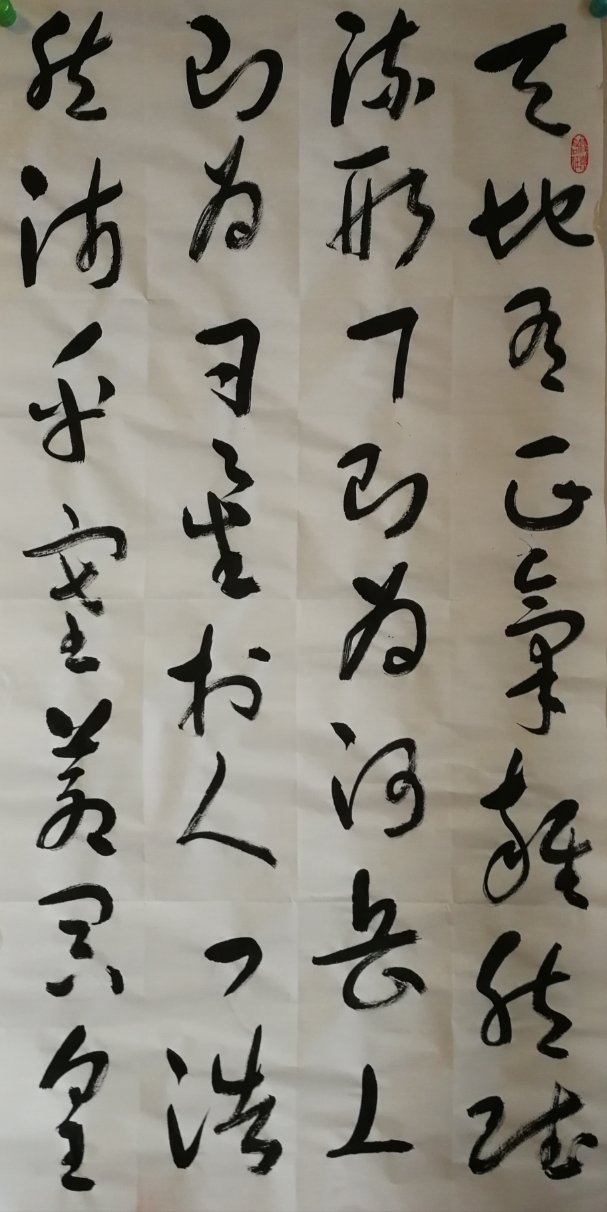 天地有正氣雜然賦
流形下則為河岳上
則為日星於人曰浩
然沛乎塞蒼冥皇